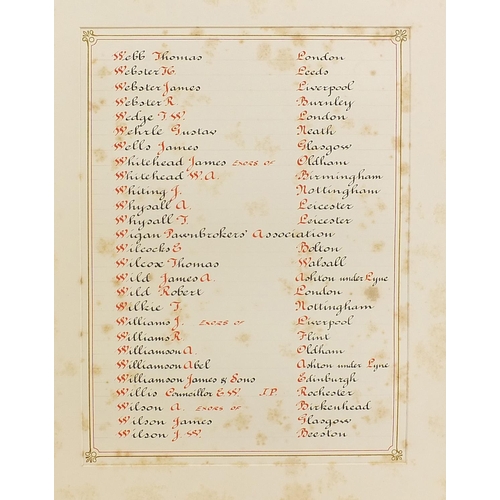 Webb Thomas London
Webster H. Leeds
Webster James Liverpool
Webster R. Burnley
Wedge T. W. London
Wehrle Gustav Neath
Wells James Glasgow
Whitehead James EXORS OF Oldham
Whitehead W. A. Birmingham
Whiting J. Nottingham
Whysall A. Leicester
Whysall T. Leicester
Wigan Pawnbrokers' Association
Wilcocks E Bolton
Wilcox Thomas Walsall
Wild James A. Ashton under Lyne
Wild Robert London
Wilkie T. Nottingham
Williams J. EXORS OF Liverpool
Williams R. Flint
Williamson A. Oldham
Williamson Abel Ashton under Lyne
Williamson James & Sons Edinburgh
Willis Councillor E W. J.P. Rochester
Wilson A. EXORS OF Birkenhead
Wilson James Glasgow
Wilson J W. Beeston